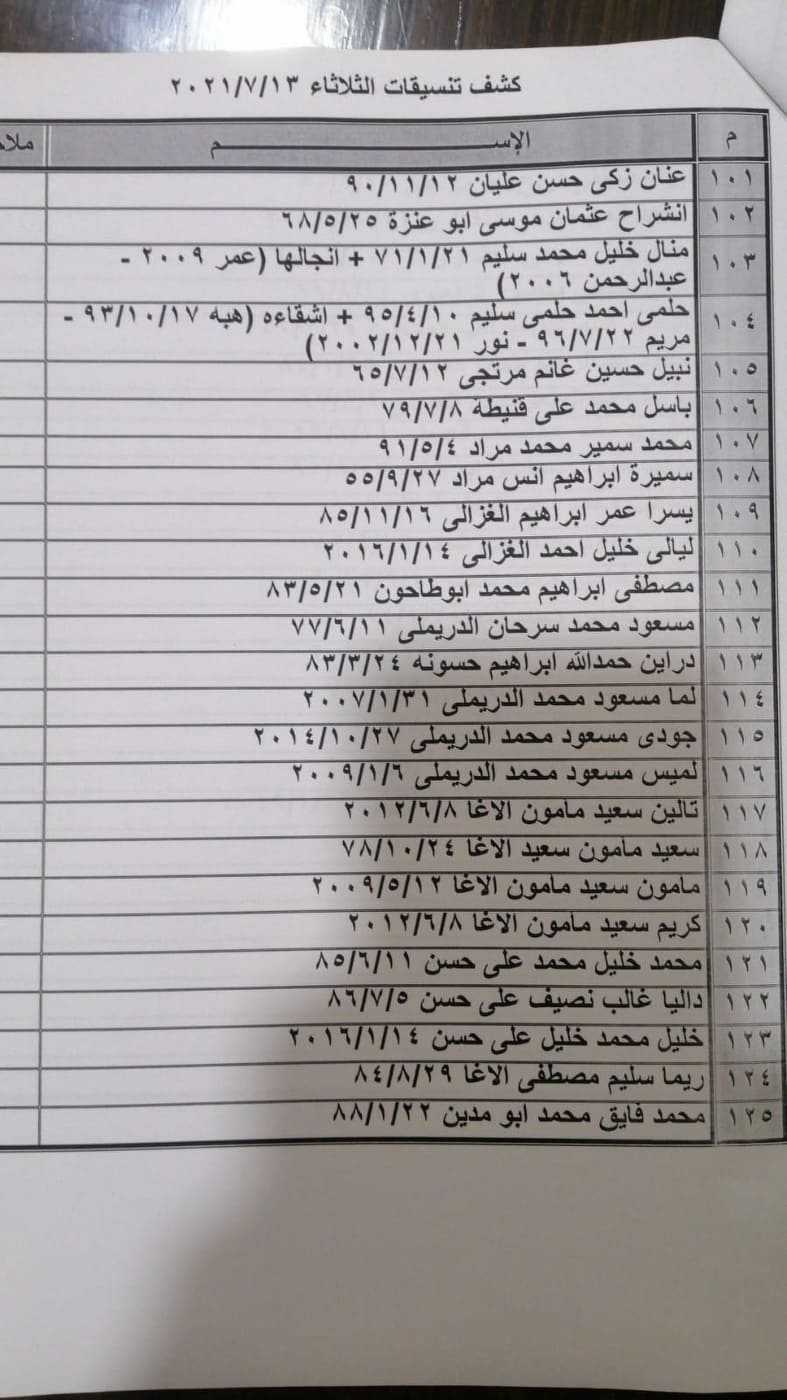 كشف تنسيقات الثلاثاء ٢٠٢١/٧/١٣
م الإســــــــــــــم
١٠١ عنان زكى حسن عليان ٩٠/١١/١٢
١٠٢ انشراح عثمان موسى ابو عنزة ٦٨/٥/٢٥
١٠٣ منال خليل محمد سليم ٧١/١/٢١ + انجالها (عمر ٢٠٠٩ -
عبدالرحمن ٢٠٠٦)
١٠٤ حلمى احمد حلمى سليم ٩٥/٤/١٠ + اشقاءه (هبه ٩٣/١٠/١٧ -
مريم ٩٦/٧/٢٢ - نور ٢٠٠٢/١٢/٢١)
١٠٥ نبيل حسين غانم مرتجى ٦٥/٧/١٢
١٠٦ باسل محمد على قنيطة ٧٩/٧/٨
١٠٧ محمد سمير محمد مراد ٩١/٥/٤
١٠٨ سميرة ابراهيم انس مراد ٥٥/٩/٢٧
١٠٩ يسرا عمر ابراهيم الغزالى ٨٥/١١/١٦
١١٠ ليالى خليل احمد الغزالى ٢٠١٦/١/١٤
١١١ مصطفى ابراهيم محمد ابوطاحون ٨٣/٥/٢١
١١٢ مسعود محمد سرحان الدريملى ٧٧/٦/١١
١١٣ دراين حمدالله ابراهيم حسونه ٨٣/٣/٢٤
١١٤ لما مسعود محمد الدريملى ٢٠٠٧/١/٣١
١١٥ جودى مسعود محمد الدريملى ٢٠١٤/١٠/٢٧
١١٦ لميس مسعود محمد الدريملى ٢٠٠٩/١/٦
١١٧ تالين سعيد مامون الاغا ٢٠١٢/٦/٨
١١٨ سعيد مامون سعيد الاغا ٧٨/١٠/٢٤
١١٩ مامون سعيد مامون الاغا ٢٠٠٩/٥/١٢
١٢٠ كريم سعيد مامون الاغا ٢٠١٢/٦/٨
١٢١ محمد خليل محمد على حسن ٨٥/٦/١١
١٢٢ داليا غالب نصيف على حسن ٨٦/٧/٥
١٢٣ خليل محمد خليل على حسن ٢٠١٦/١/١٤
١٢٤ ريما سليم مصطفى الاغا ٨٤/٨/٢٩
١٢٥ محمد فايق محمد ابو مدين ٨٨/١/٢٢